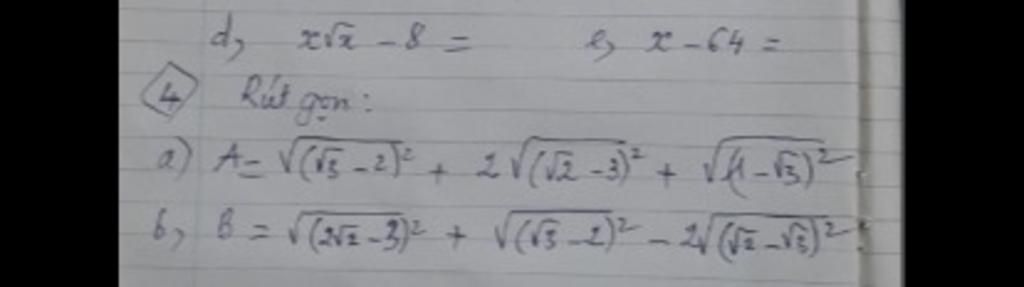 d, x√x - 8 =    e, x - 64 =
4 Rút gọn:
a) A = √(√3 - 2)² + 2√(√2 - 3)² + √(1 - √3)²
b, B = √(2√2 - 3)² + √(√3 - 2)² - 2√(√2 - √3)²